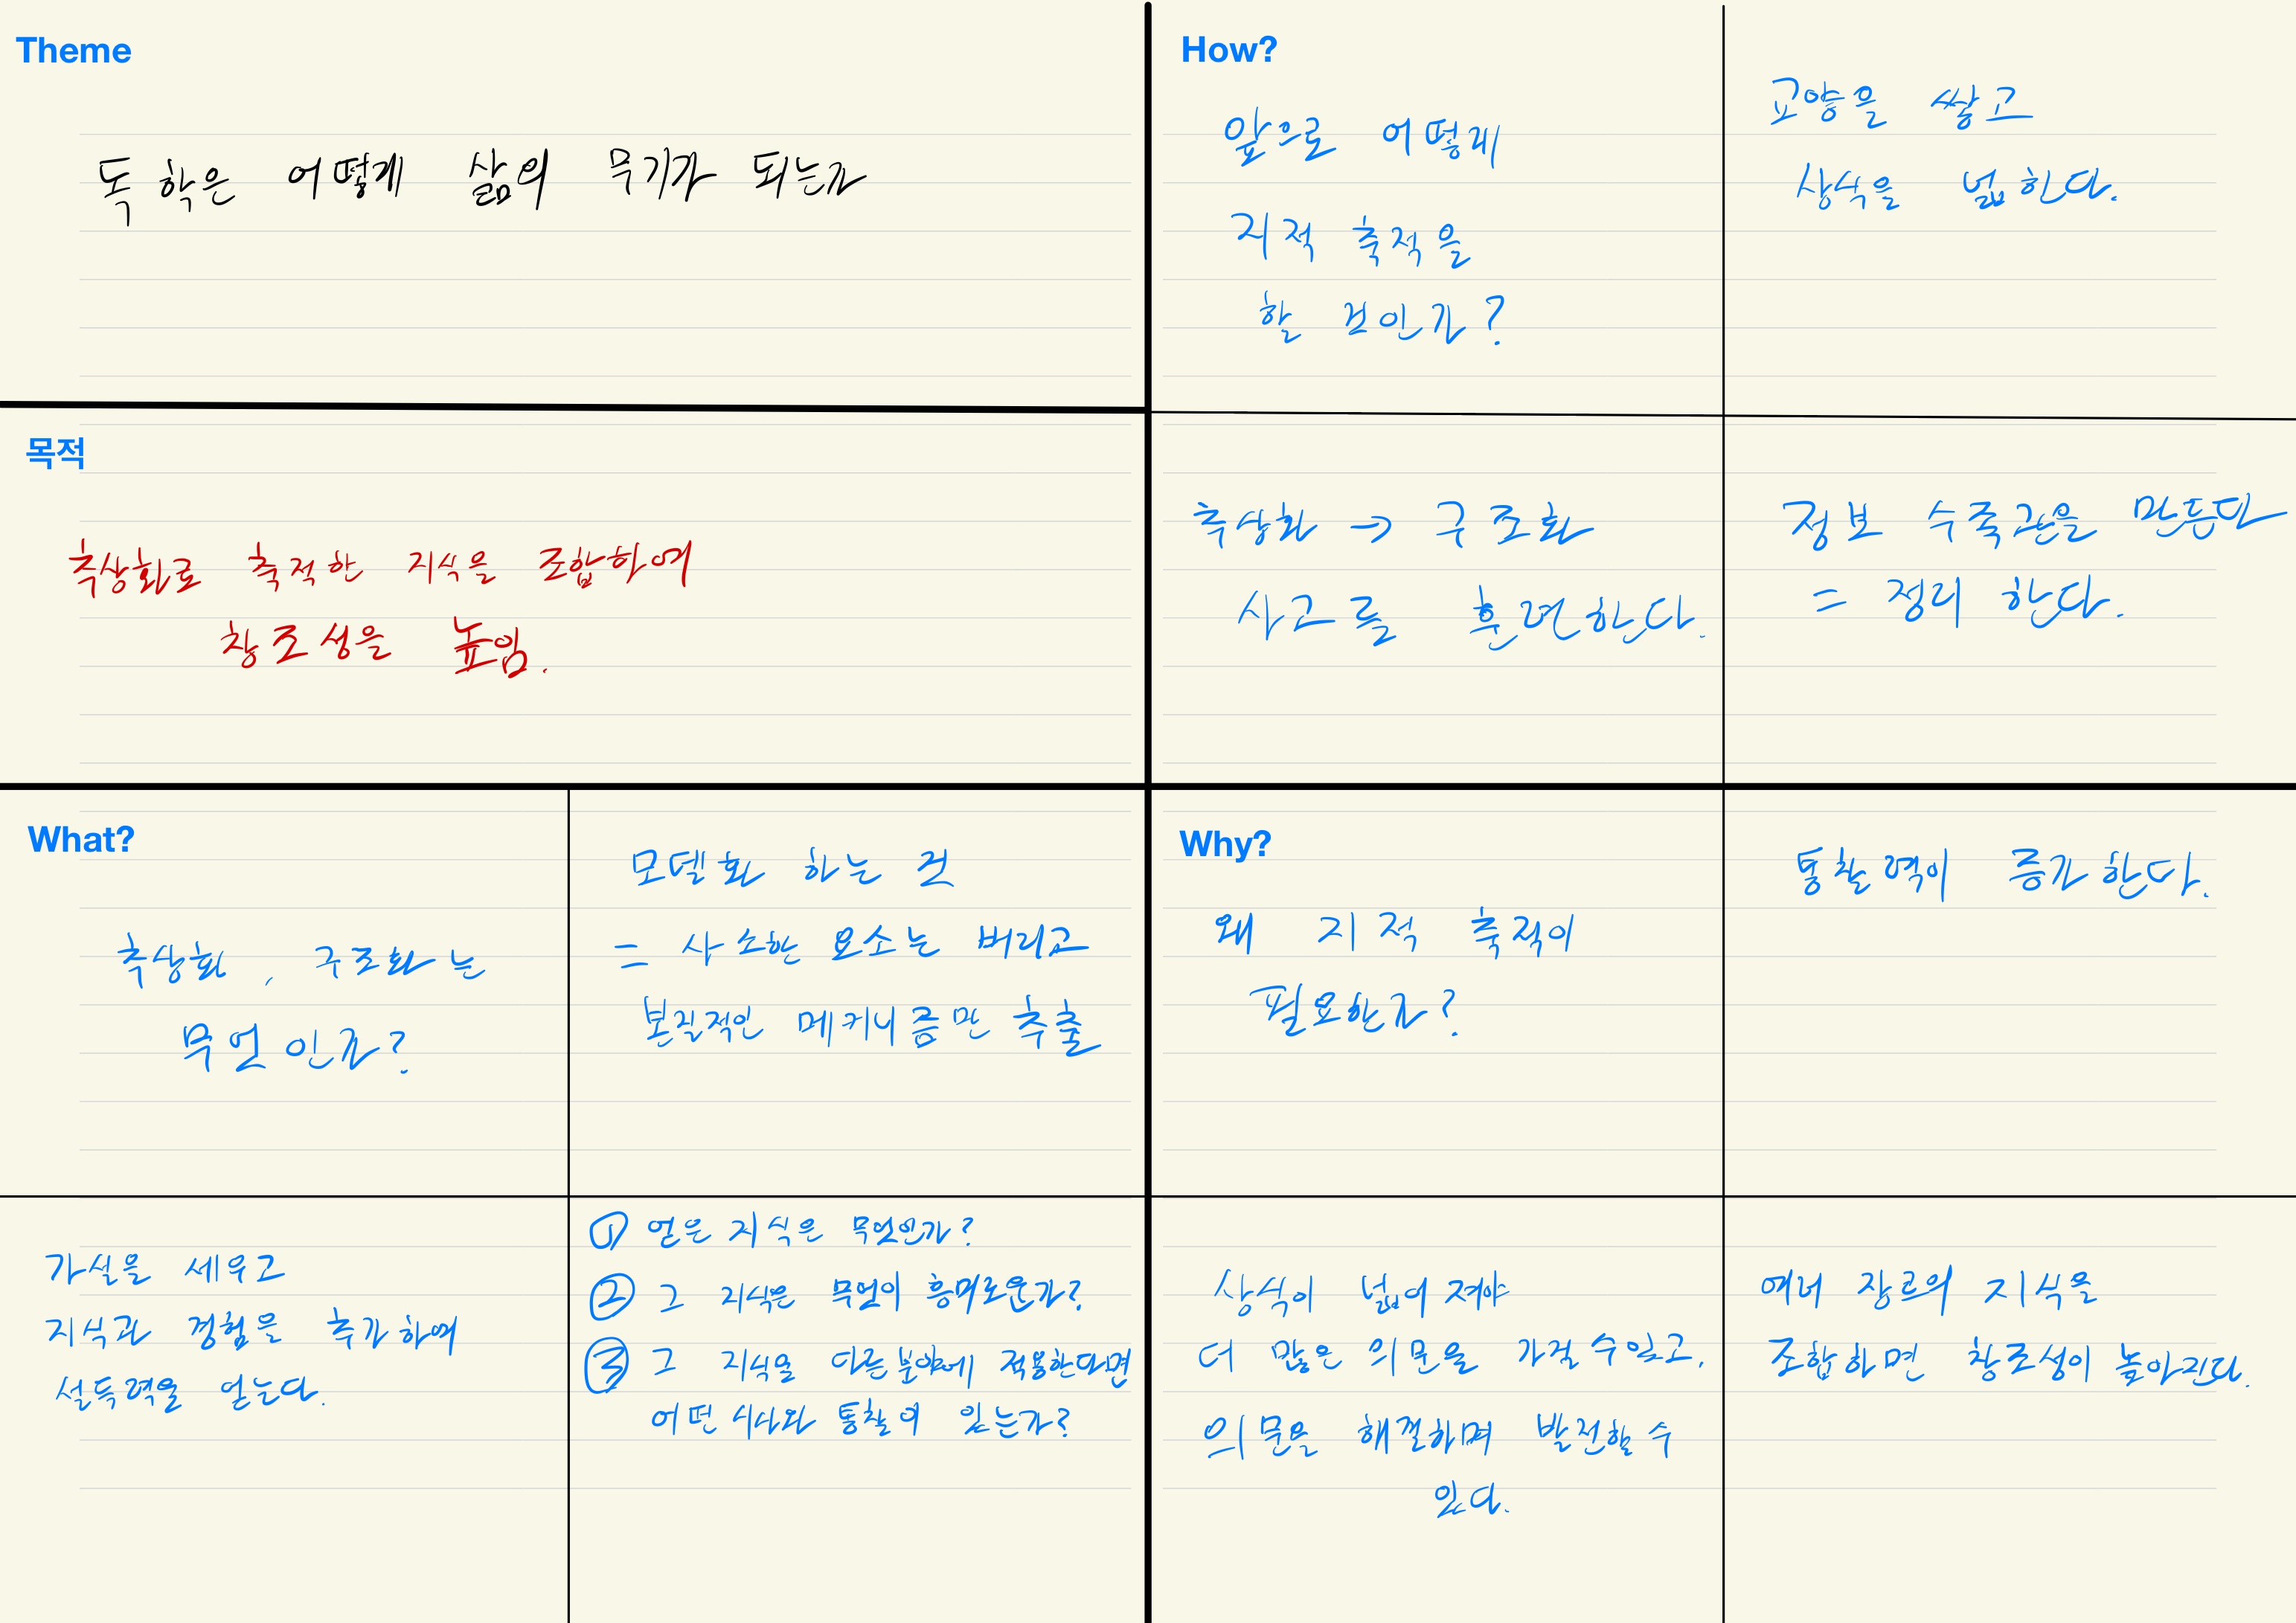 Theme
독학은 어떻게 삶의 무기가 되는가
목적
추상화로 축적한 지식을 조합하여
창조성을 높임.
How?
앞으로 어떻게
지적 축적을
할 것인가?
교양을 쌓고
상식을 넓힌다.
추상화 → 구조화
사고를 훈련한다.
정보 수족관을 만든다
= 정리 한다.
What?
추상화, 구조화는
무엇인가?
모델화 하는 것
= 사소한 요소는 버리고
본질적인 메커니즘만 추출
가설을 세우고
지식과 경험을 추가하여
설득력을 얻는다.
① 얻은 지식은 무엇인가?
② 그 지식은 무엇이 흥미로운가?
③ 그 지식을 다른 분야에 적용한다면
어떤 시사와 통찰이 있는가?
Why?
왜 지적 축적이
필요한가?
통찰력이 증가한다.
상식이 넓어져야
더 많은 의문을 가질 수 있고,
의문을 해결하며 발전할 수
있다.
여러 장르의 지식을
조합하면 창조성이 높아진다.